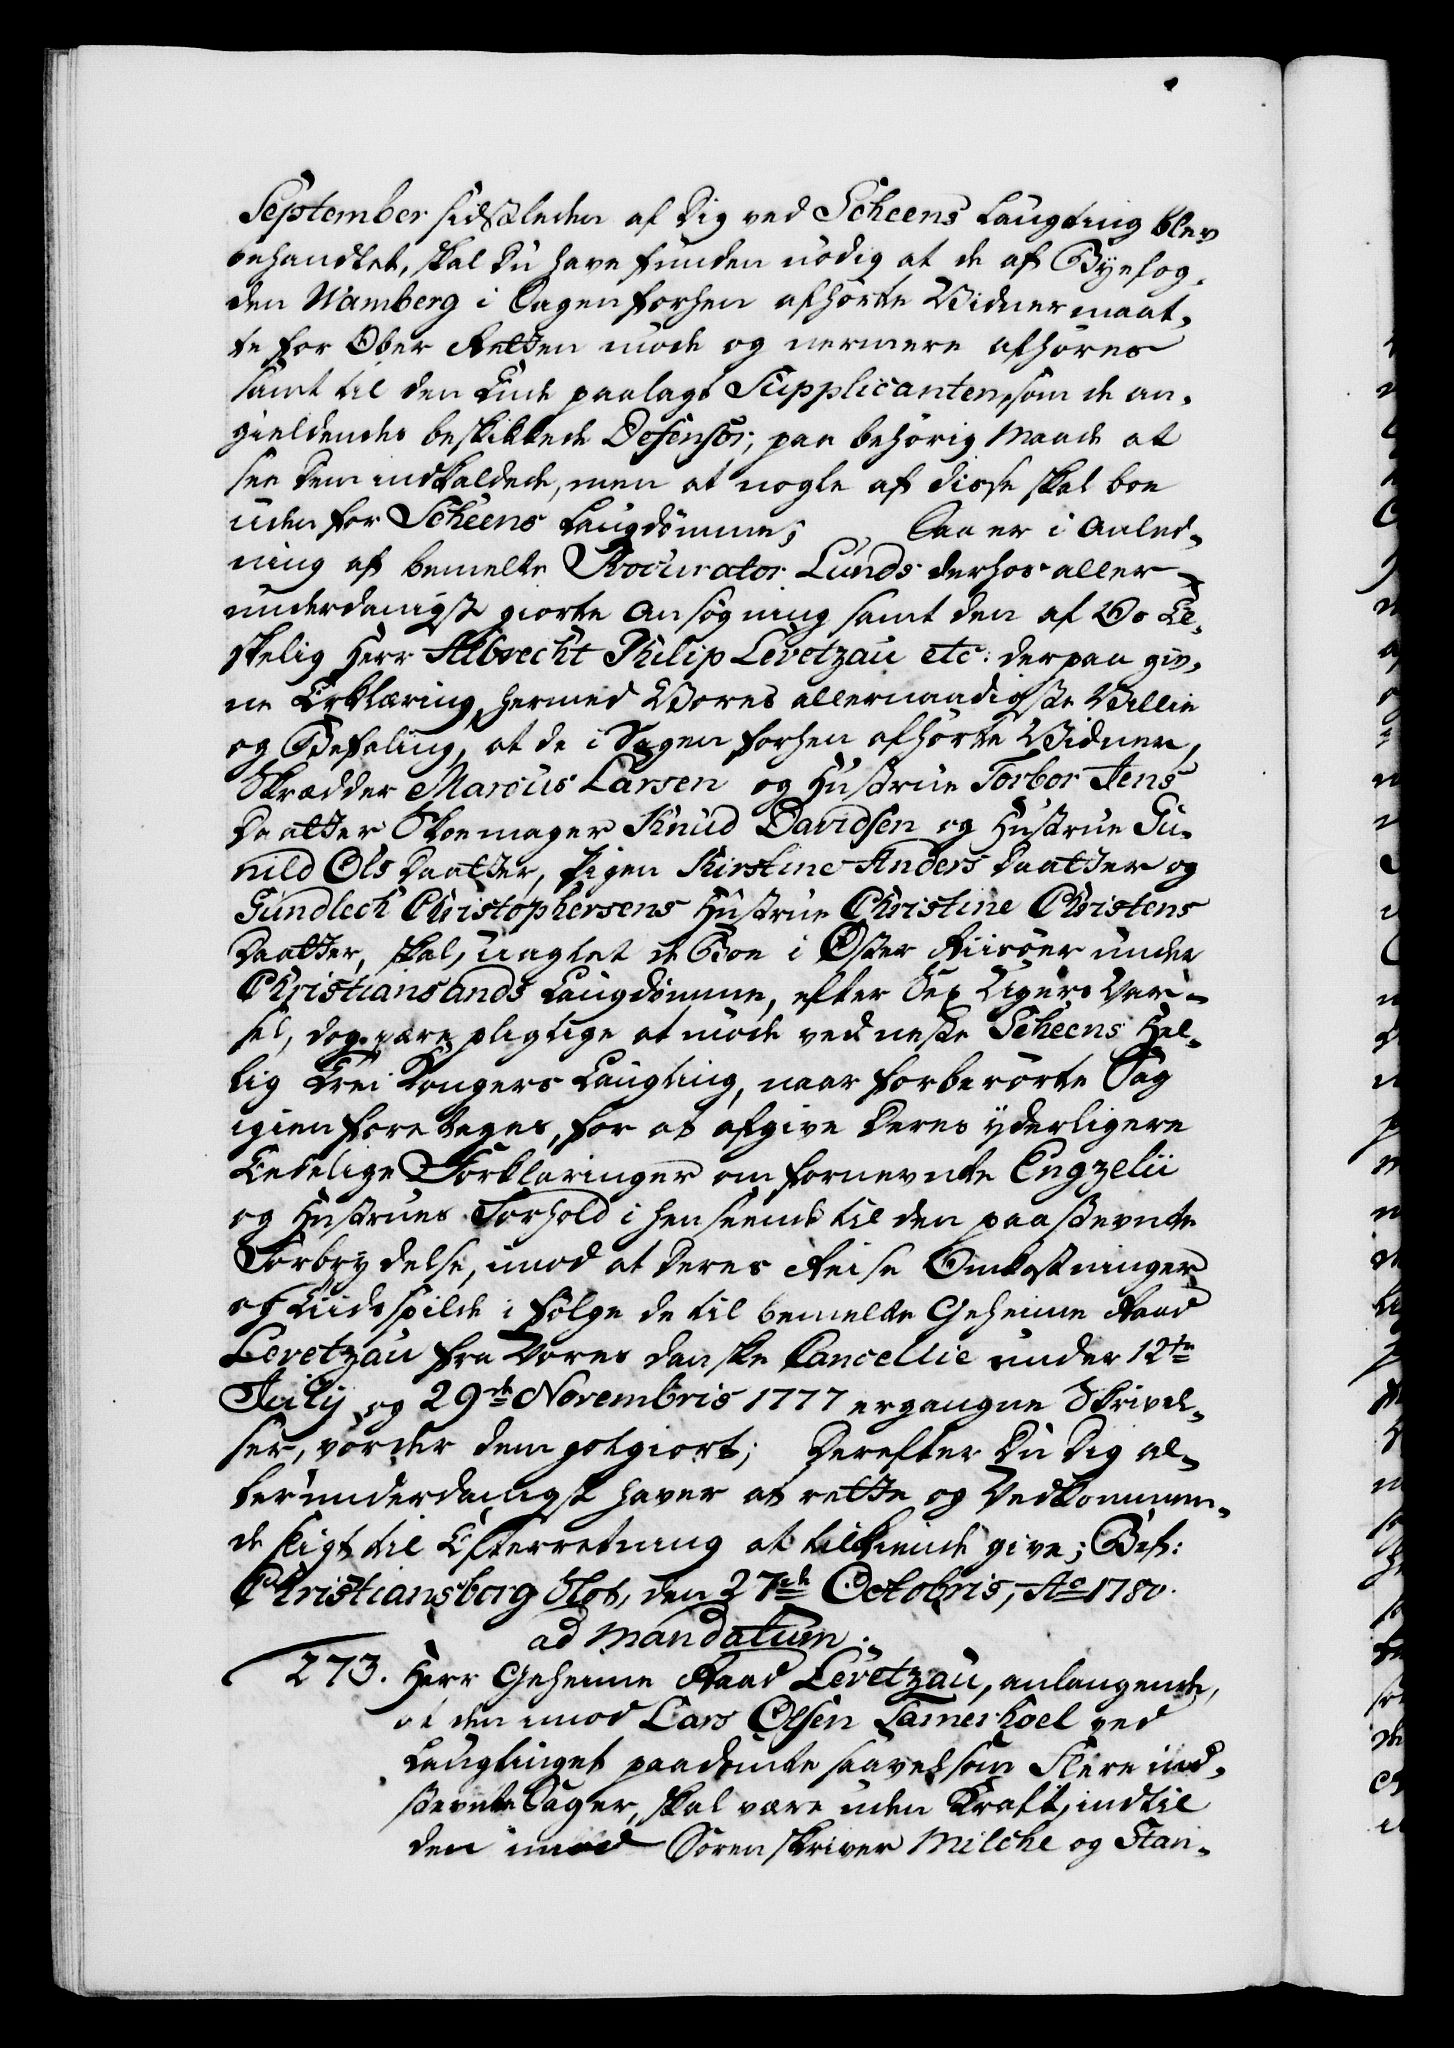 September sidstleden af dig ved Scheens Laugting blev
behandlet, skal du have funden nödig at de af Byefog-
den Wamberg i Sagen forhen afhörte Vidner maat-
te for Ober Retten möde og nermere afhöres
samt til den Ende paalagt Supplicanten, som de an-
gieldendes beskikkede Defensor, paa behörig Maade at
see dem indkaldede, men at nogle af disse skal boe
uden for Scheens Laugdömme; Saa er i Anled-
ning af bemelte Procurator Lunds derhos aller-
underdanigst giorte Ansögning samt den af Os El-
skelig Herr Albrecht Philip Levetzau etc: derpaa giv-
ne Erklæring, hermed Vores allernaadigste Villie
og Befaling, at de i Sagen forhen afhörte Vidner,
Skrædder Marcus Larsen og Hustrue Torbor Jens
Daatter Skoemager Knud Davidsen og Hustrue Gu-
nild Ols Daatter, Pigen Kirstine Anders Daatter og
Gundlech Christophersens Hustrue Christine Christens
Daatter, skal, uagtet de Boe i Öster Riisöer under
Christiansands Laugdömme, efter Sex Ugers Var-
sel, dog være pligtige at möde ved neste Scheens Hel-
lig Trei Kongers Laugting, naar forberörte Sag
igien foretages, for at afgive deres yderligere
Eedelige Forklaringer om fornevnte Engzelii
og Hustrues Forhold i henseende til den paastevnte
Forbrydelse, imod at deres Reise Omkostninger
og Tiidsspilde i fölge de til bemelte Geheime Raad
Levetzau fra Vores danske Cancellie under 12te
July og 29de Novembris 1777 ergangne Skrivel-
ser, vorder dem godgiort; Derefter du dig al-
lerunderdanigst haver at rette og Vedkommen-
de sligt til Efterretning at tilkiende give; Bef:
Christiansborg Slot, den 27de Octobris, Ao 1780.
ad mandatum.
273. Herr Geheime Raad Levetzau, anlangende,
at den imod Lars Olsen Tamerhoel ved
Laugtinget paadömte saavelsom Flere ind-
stevnte Sager, skal være uden Kraft, indtil
den imod Sorenskriver Milche og Stan-